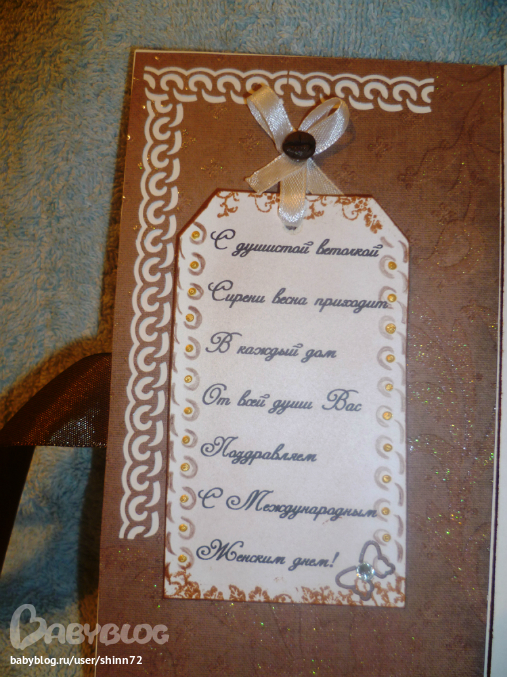 С душистой веточкой
Сирени весна приходит
В каждый дом
От всей души Вас
Поздравляем
С Международным
Женским днем!
BABYBLOG
babyblog.ru/user/shinn72